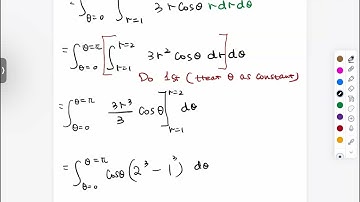 = ∫_{θ=0}^{θ=π} ∫_{r=1} 3r cosθ r dr dθ
= ∫_{θ=0}^{θ=π} [ ∫_{r=1}^{r=2} 3r² cosθ dr ] dθ
Do 1st (treat θ as constant)
= ∫_{θ=0}^{θ=π} 3r³/3 cosθ ]_{r=1}^{r=2} dθ
= ∫_{θ=0}^{θ=π} cosθ (2³ - 1³) dθ